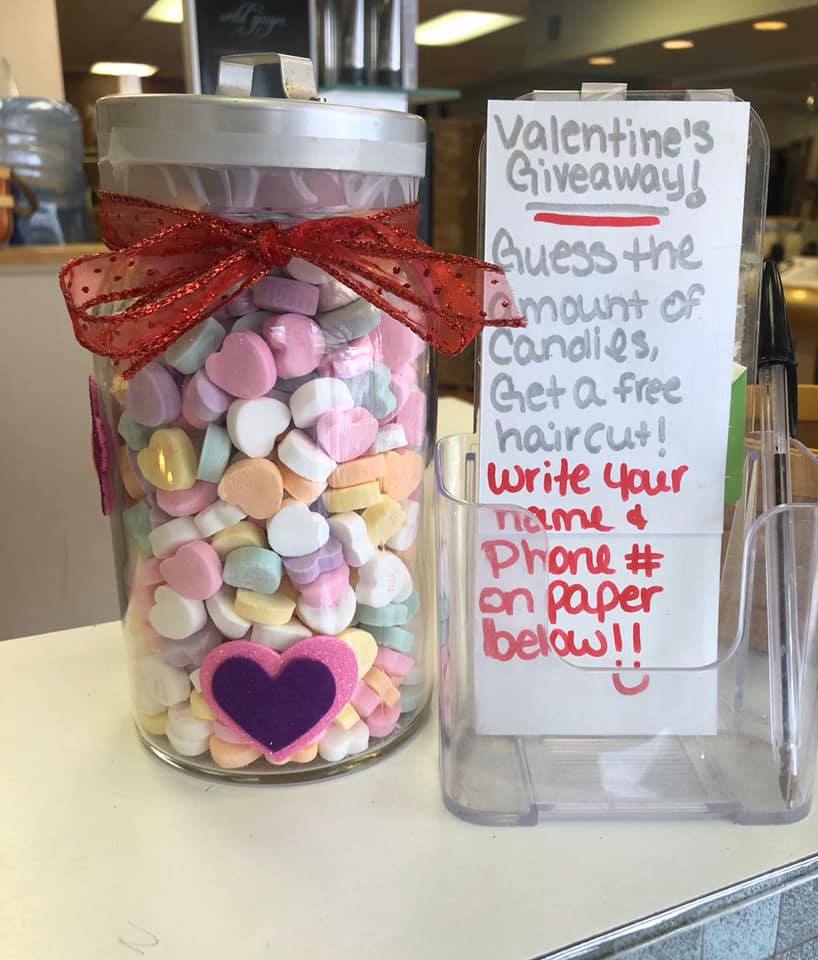 Valentine's
Giveaway!
Guess the
amount of
Candies,
Get a free
haircut!
Write your
name &
Phone #
on paper
below!!